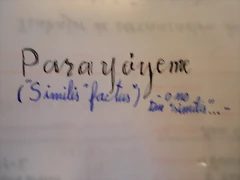 Parayáyeme
("Similis" factus") - o no
"similis"... -